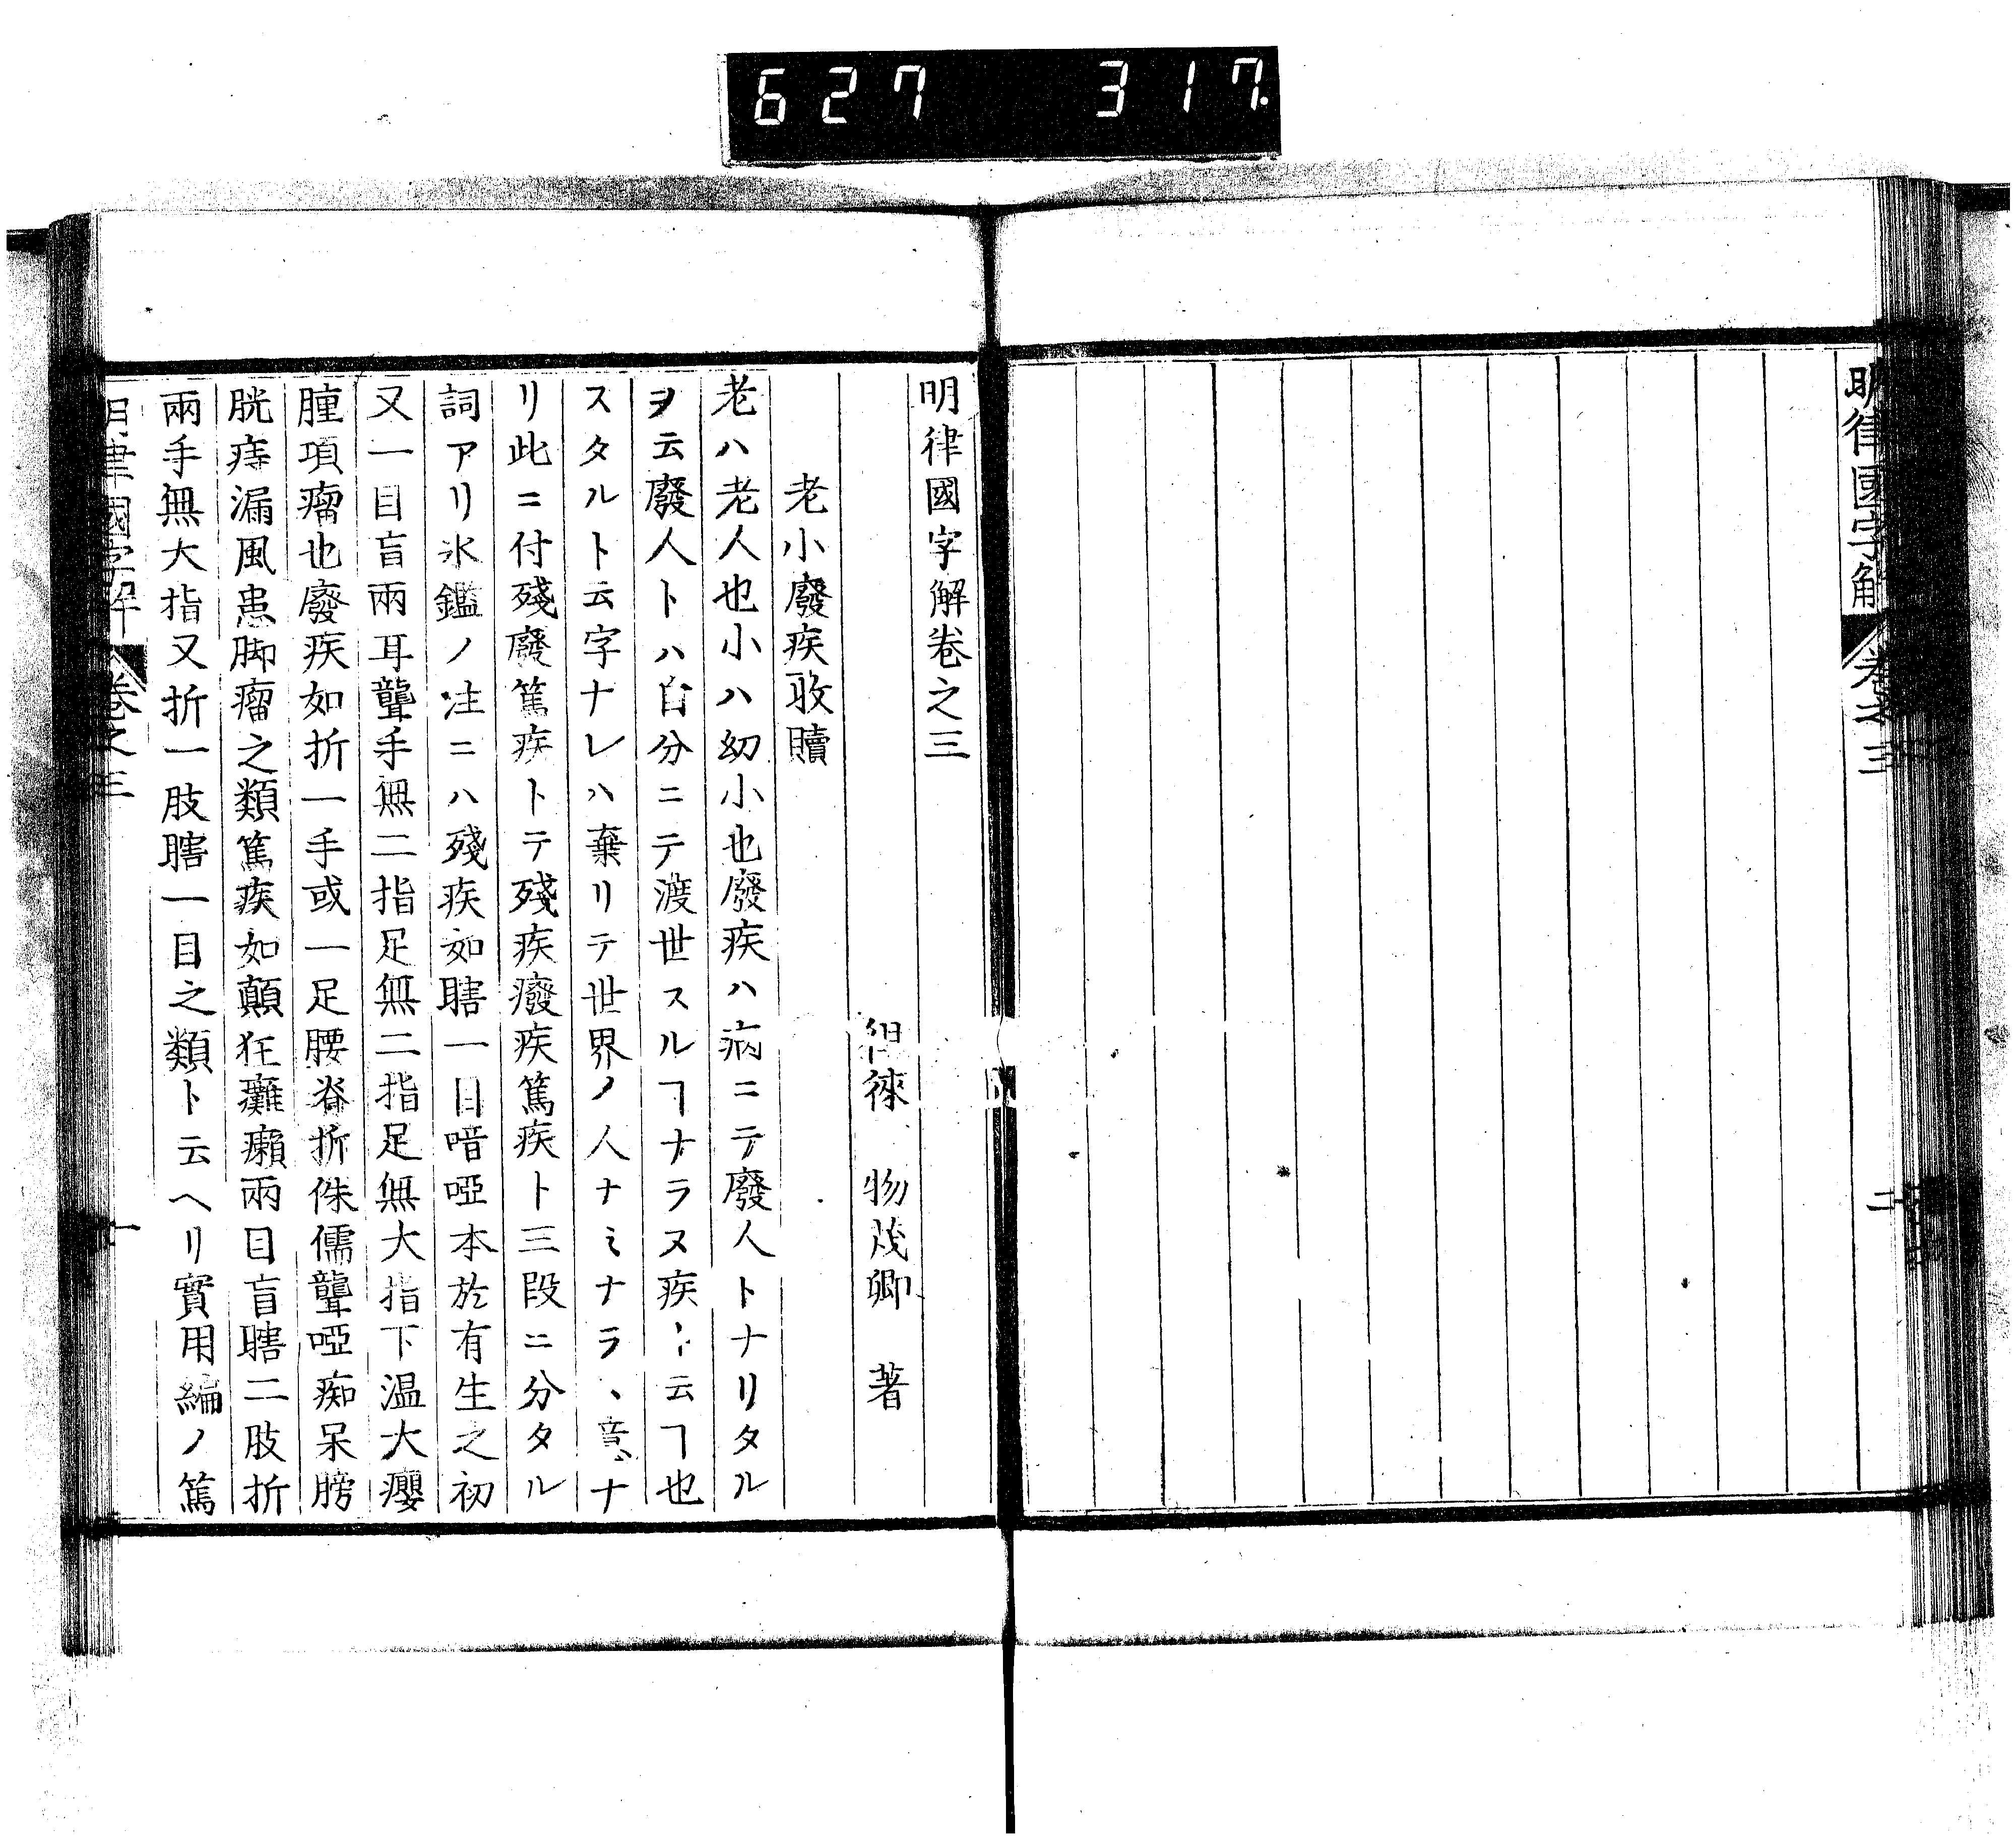 627 317
明律國字解 卷之三 二
明律國字解卷之三
徂徠 物茂卿 著
老小廢疾收贖
老ハ老人也小ハ幼小也廢疾ハ病ニテ廢人トナリタル
ヲ云廢人トハ自分ニテ渡世スルヿナラヌ疾ト云ヿ也
スタルト云字ナレハ棄リテ世界ノ人ナミナラヽ意ナ
リ此ニ付殘廢篤疾トテ殘疾癈疾篤疾ト三段ニ分タル
詞アリ氷鑑ノ注ニハ殘疾如瞎一目喑啞本於有生之初
又一目盲兩耳聾手無二指足無二指足無大指下温大癭
腫項瘤也廢疾如折一手或一足腰脊折侏儒聾啞痴呆膀
胱痔漏風患脚瘤之類篤疾如顛狂癱癩兩目盲瞎二肢折
兩手無大指又折一肢瞎一目之類ト云ヘリ實用編ノ篤
明律國字解 卷之三 一